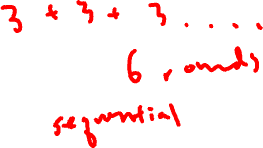 3 + 3 + 3 ....
6 rounds
sequential